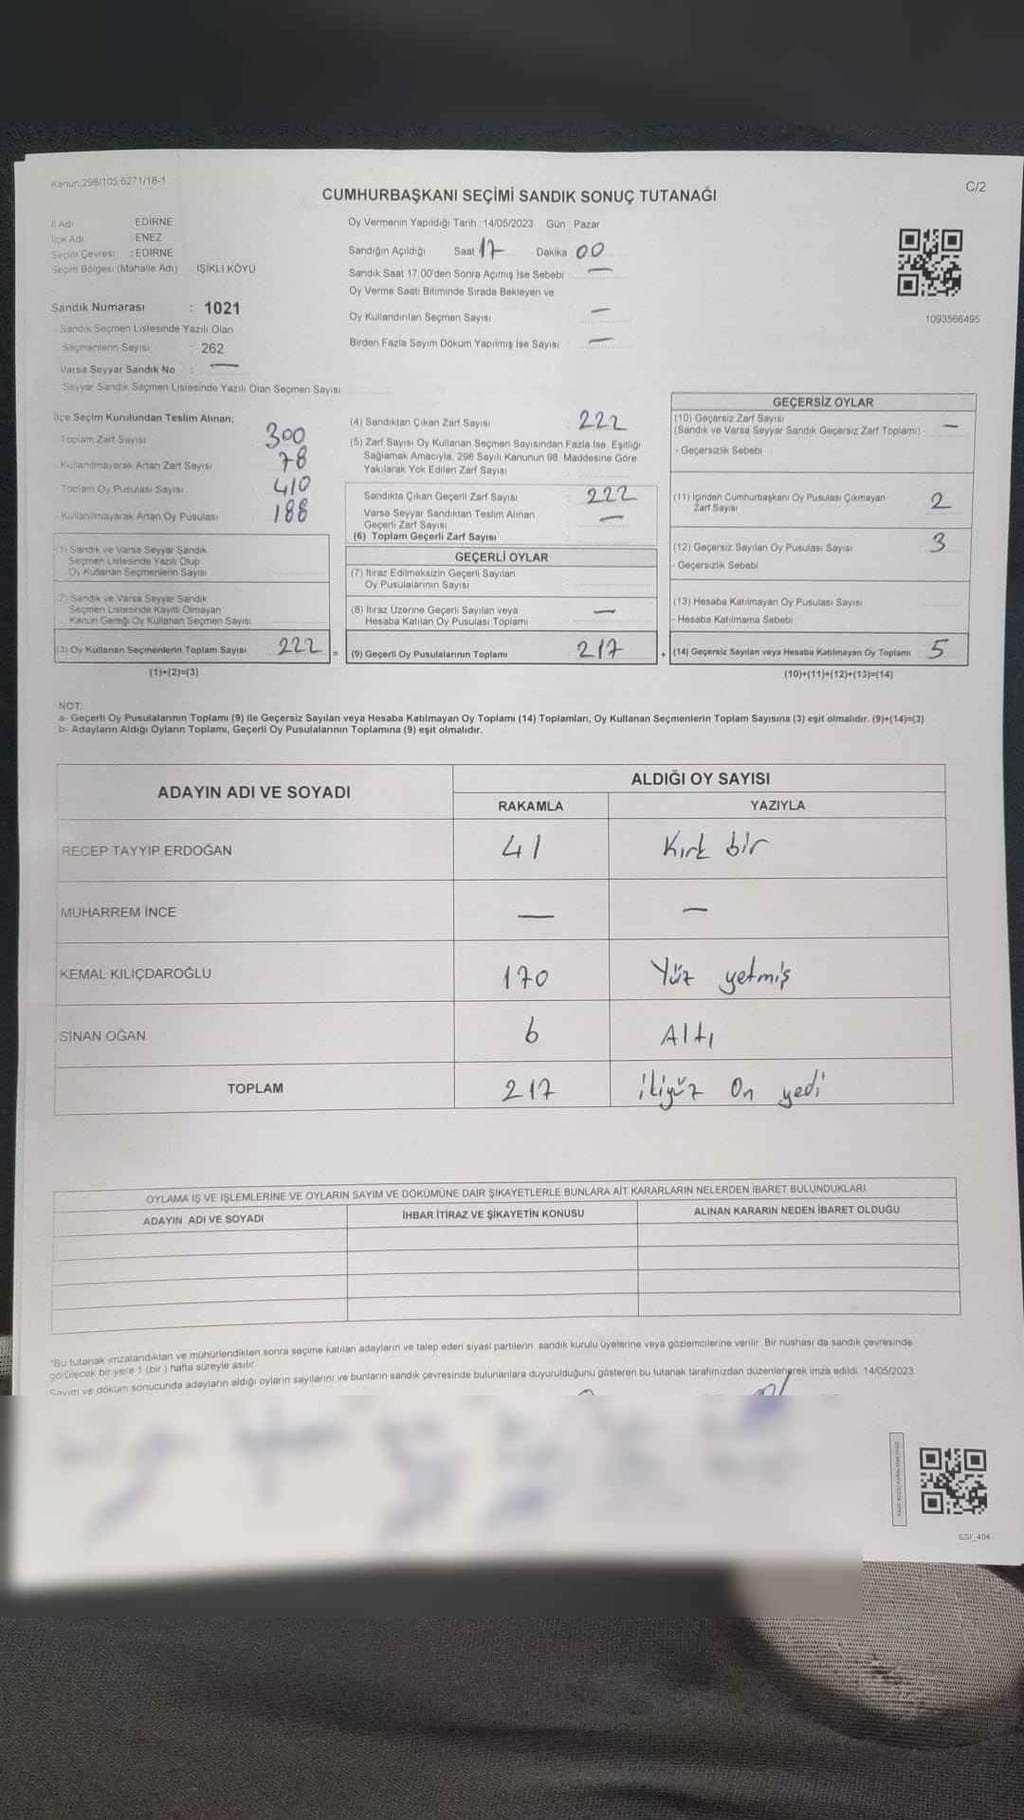 Kanun:298/105,6271/18-1
C/2
CUMHURBAŞKANI SEÇİMİ SANDIK SONUÇ TUTANAĞI
İl Adı EDİRNE
İlçe Adı ENEZ
Seçim Çevresi : EDİRNE
Seçim Bölgesi (Mahalle Adı) IŞIKLI KÖYÜ
Sandık Numarası : 1021
Sandık Seçmen Listesinde Yazılı Olan
Seçmenlerin Sayısı : 262
Varsa Seyyar Sandık No : —
Seyyar Sandık Seçmen Listesinde Yazılı Olan Seçmen Sayısı
Oy Vermenin Yapıldığı Tarih : 14/05/2023 Gün : Pazar
Sandığın Açıldığı Saat 17 Dakika 00
Sandık Saat 17:00'den Sonra Açılmış İse Sebebi —
Oy Verme Saati Bitiminde Sırada Bekleyen ve
Oy Kullandırılan Seçmen Sayısı —
Birden Fazla Sayım Döküm Yapılmış İse Sayısı —
1093566495
İlçe Seçim Kurulundan Teslim Alınan;
Toplam Zarf Sayısı 300
Kullanılmayarak Artan Zarf Sayısı 78
Toplam Oy Pusulası Sayısı 410
Kullanılmayarak Artan Oy Pusulası 188
(1) Sandık ve Varsa Seyyar Sandık
Seçmen Listesinde Yazılı Olup
Oy Kullanan Seçmenlerin Sayısı
(2) Sandık ve Varsa Seyyar Sandık
Seçmen Listesinde Kayıtlı Olmayan
Kanun Gereği Oy Kullanan Seçmen Sayısı
(3) Oy Kullanan Seçmenlerin Toplam Sayısı 222 =
(1)+(2)=(3)
(4) Sandıktan Çıkan Zarf Sayısı 222
(5) Zarf Sayısı Oy Kullanan Seçmen Sayısından Fazla İse, Eşitliği
Sağlamak Amacıyla, 298 Sayılı Kanunun 98. Maddesine Göre
Yakılarak Yok Edilen Zarf Sayısı
Sandıkta Çıkan Geçerli Zarf Sayısı 222
Varsa Seyyar Sandıktan Teslim Alınan
Geçerli Zarf Sayısı —
(6) Toplam Geçerli Zarf Sayısı
GEÇERLİ OYLAR
(7) İtiraz Edilmeksizin Geçerli Sayılan
Oy Pusulalarının Sayısı
(8) İtiraz Üzerine Geçerli Sayılan veya
Hesaba Katılan Oy Pusulası Toplamı —
(9) Geçerli Oy Pusulalarının Toplamı 217 +
GEÇERSİZ OYLAR
(10) Geçersiz Zarf Sayısı
(Sandık ve Varsa Seyyar Sandık Geçersiz Zarf Toplamı) —
- Geçersizlik Sebebi
(11) İçinden Cumhurbaşkanı Oy Pusulası Çıkmayan
Zarf Sayısı 2
(12) Geçersiz Sayılan Oy Pusulası Sayısı 3
- Geçersizlik Sebebi
(13) Hesaba Katılmayan Oy Pusulası Sayısı
- Hesaba Katılmama Sebebi
(14) Geçersiz Sayılan veya Hesaba Katılmayan Oy Toplamı 5
(10)+(11)+(12)+(13)=(14)
NOT:
a- Geçerli Oy Pusulalarının Toplamı (9) ile Geçersiz Sayılan veya Hesaba Katılmayan Oy Toplamı (14) Toplamları, Oy Kullanan Seçmenlerin Toplam Sayısına (3) eşit olmalıdır. (9)+(14)=(3)
b- Adayların Aldığı Oyların Toplamı, Geçerli Oy Pusulalarının Toplamına (9) eşit olmalıdır.
ADAYIN ADI VE SOYADI ALDIĞI OY SAYISI
RAKAMLA YAZIYLA
RECEP TAYYİP ERDOĞAN 41 Kırk bir
MUHARREM İNCE — —
KEMAL KILIÇDAROĞLU 170 Yüz yetmiş
SİNAN OĞAN 6 Altı
TOPLAM 217 ikiyüz On yedi
OYLAMA İŞ VE İŞLEMLERİNE VE OYLARIN SAYIM VE DÖKÜMÜNE DAİR ŞİKAYETLERLE BUNLARA AİT KARARLARIN NELERDEN İBARET BULUNDUKLARI
ADAYIN ADI VE SOYADI İHBAR İTİRAZ VE ŞİKAYETİN KONUSU ALINAN KARARIN NEDEN İBARET OLDUĞU
*Bu tutanak imzalandıktan ve mühürlendikten sonra seçime katılan adayların ve talep eden siyasi partilerin sandık kurulu üyelerine veya gözlemcilerine verilir. Bir nüshası da sandık çevresinde
görülecek bir yere 1 (bir) hafta süreyle asılır.
Sayım ve döküm sonucunda adayların aldığı oyların sayılarını ve bunların sandık çevresinde bulunanlara duyurulduğunu gösteren bu tutanak tarafımızdan düzenlenerek imza edildi. 14/05/2023